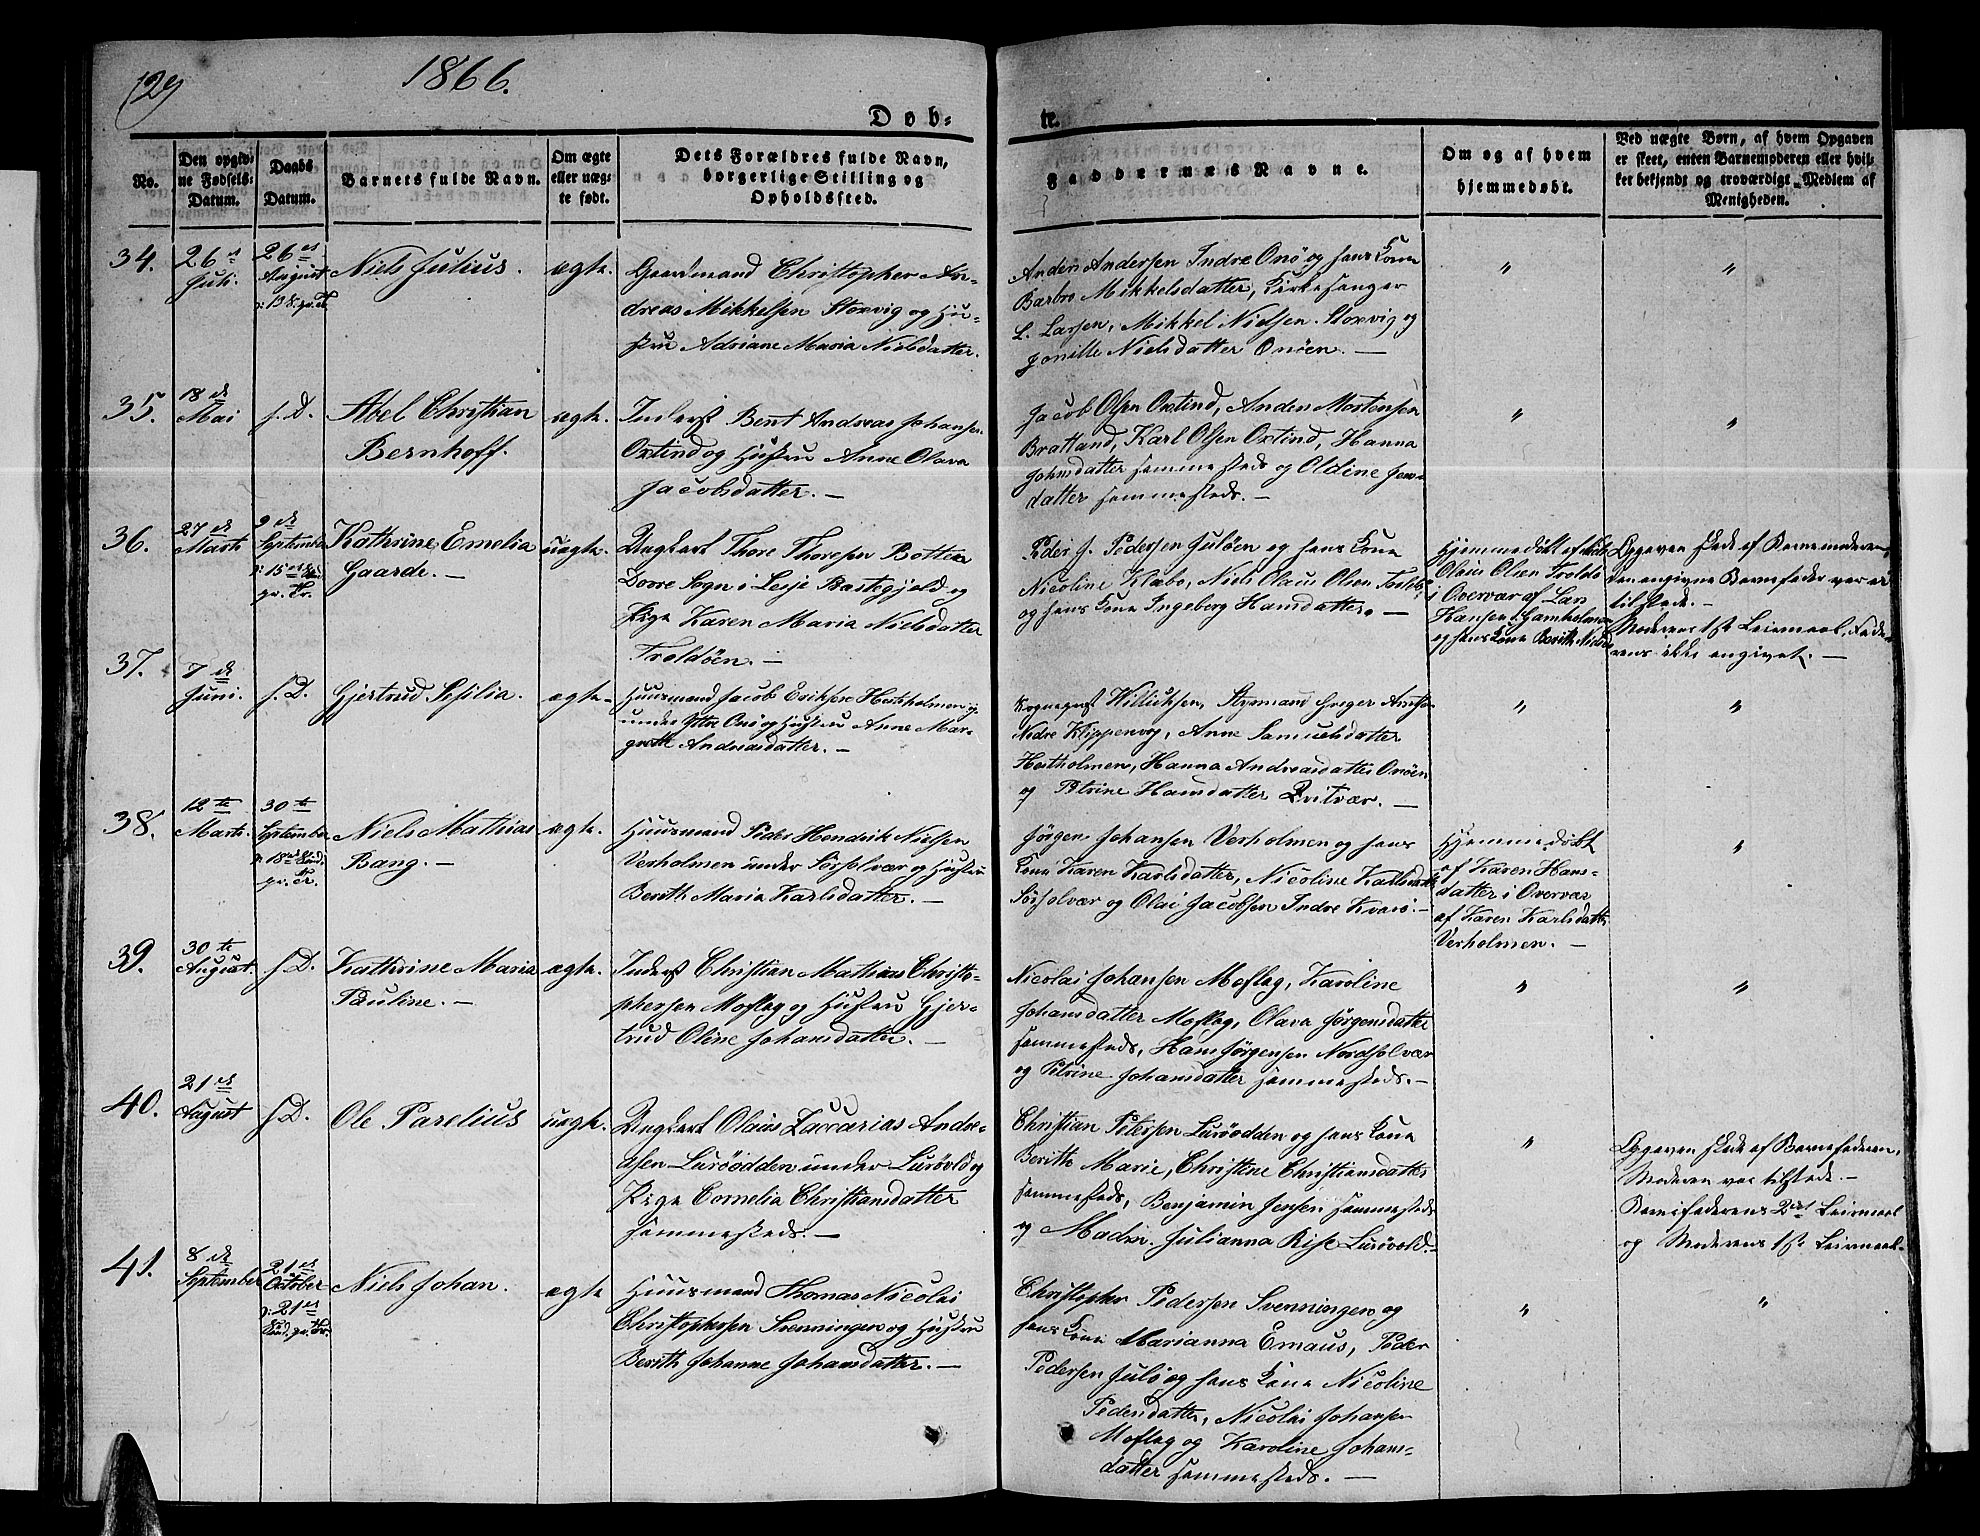 129
1866.
Døb-
te.
No.
Den opgiv-
ne Fødsels-
Datum.
Daabs
Datum.
Barnets fulde Navn.
Om ægte
eller uæg-
te født.
Dets Forældres fulde Navn,
borgerlige Stilling og
Opholdssted.
Faddernes Navne.
Om og af hvem
hjemmedøbt.
Ved uægte Børn, af hvem Opgaven
er skeet, enten Barnemoderen eller hvil-
ket bekjendt og troværdigt Medlem af
Menigheden.
34.
26de
Juli.
26de
August
Niels Julius.
ægte.
Gaardmand Christopher An-
dreas Mikkelsen Storvig og Hu-
stru Adriane Maria Nielsdatter.
Anders Andersen Indre Onö og hans Kone
Barbro Mikkelsdatter, Kirkesanger
L. Larsen, Mikkel Nielsen Storvig og
Jonille Nielsdatter Onöen. —
"
"
35.
18de
Mai
s. D.
Abel Christian
Bernhoff.
ægte.
Inderst Bent Andreas Johansen
Oxtind og Hustru Anne Olava
Jacobsdatter. —
Jacob Olsen Oxtind, Anders Mortensen
Bratland, Karl Olsen Oxtind, Hanna
Johnsdatter sammesteds og Oldine Jens-
datter sammesteds. —
"
"
36.
27de
Marts
9de
September
Kathrine Emelia
Gaarde. —
uægte.
Ungkarl Thore Thoresen Botten
Dovre Sogn i Lesje Præstegjeld og
Pige Karen Maria Nielsdatter
Troldöen. —
Peder J. Pedersen Julöen og hans Kone
Nicoline Klæbo, Niels Olaus Olsen Troldö,
og hans Kone Ingeborg Hansdatter. —
Hjemmedöbt af Niels
Olaus Olsen Troldö
i Overvær af Lars
Hansen Gamholmen
og hans Kone Berith Nielsd.
Opgaven skede af Barnemoderen,
den angivne Barnefader var ei
tilstede. —
Moderens 1ste Leiermaal, Fade-
rens ikke angivet. —
37.
7de
Juni.
s. D.
Gjertrud Sisilia.
ægte.
Huusmand Jacob Eriksen Hestholmen
under Yttre Onö og Hustru Anne Mar-
grethe Andreasdatter. —
Sogneprest Willichsen, Styrmand Greger
Nedre Klippenvog, Anne Samuelsdatter
Hestholmen, Hanna Andreasdatter Onöen
og Petrine Hansdatter Qvitvær. —
"
"
38.
12te
Marts.
30te
September
Niels Mathias
Bang. —
ægte.
Huusmand Peder Hendrik Nielsen
Verholmen under Sörsolvær og Hustru
Berith Maria Karlsdatter. —
Jørgen Johansen Verholmen og hans
Kone Karen Karlsdatter, Nicoline Karlsdatter
Sörsolvær og Olai Jacobsen Indre Kvarö. —
Hjemmedöbt
af Karen Hans-
datter i Overvær
af Karen Karlsdatter
Verholmen. —
"
39.
30te
August.
s. D.
Kathrine Maria
Pauline. —
ægte.
Inderst Christian Mathias Christo-
phersen Moflag og Hustru Gjer-
trud Oline Johansdatter. —
Nicolai Johansen Moflag, Karoline
Johansdatter Moflag, Olava Jørgensdatter
sammesteds, Hans Jørgensen Nordsolvær
og Petrine Johansdatter sammesteds. —
"
"
40.
21de
August
s. D.
Ole Parelius
uægte.
Ungkarl Olaus Zaccarias Andre-
asen Luröodden under Lurövold og
Pige Cornelia Christiansdatter
sammesteds. —
Christian Petersen Luröodden og hans Kone
Berith Marie, Christine Christiansdatter
sammesteds, Benjamin Jensen sammesteds
og Madm. Julianna Riise Lurövold. —
"
Opgaven skede af Barnefaderen,
Moderen var tilstede. —
Barnefaderens 2det Leiermaal
og Moderens 1ste Leiermaal. —
41.
8de
September
21de
October
Niels Johan.
ægte
Huusmand Thomas Nicolai
Christophersen Svenningen og Hustru
Berith Johanne Johansdatter. —
Christopher Pedersen Svenningen og
hans Kone Marianna Emaus, Peder
Pedersen Julö og hans Kone Nicoline
Pedersdatter, Nicolai Johansen
Moflag og Karoline Johans-
datter sammesteds. —
"
"